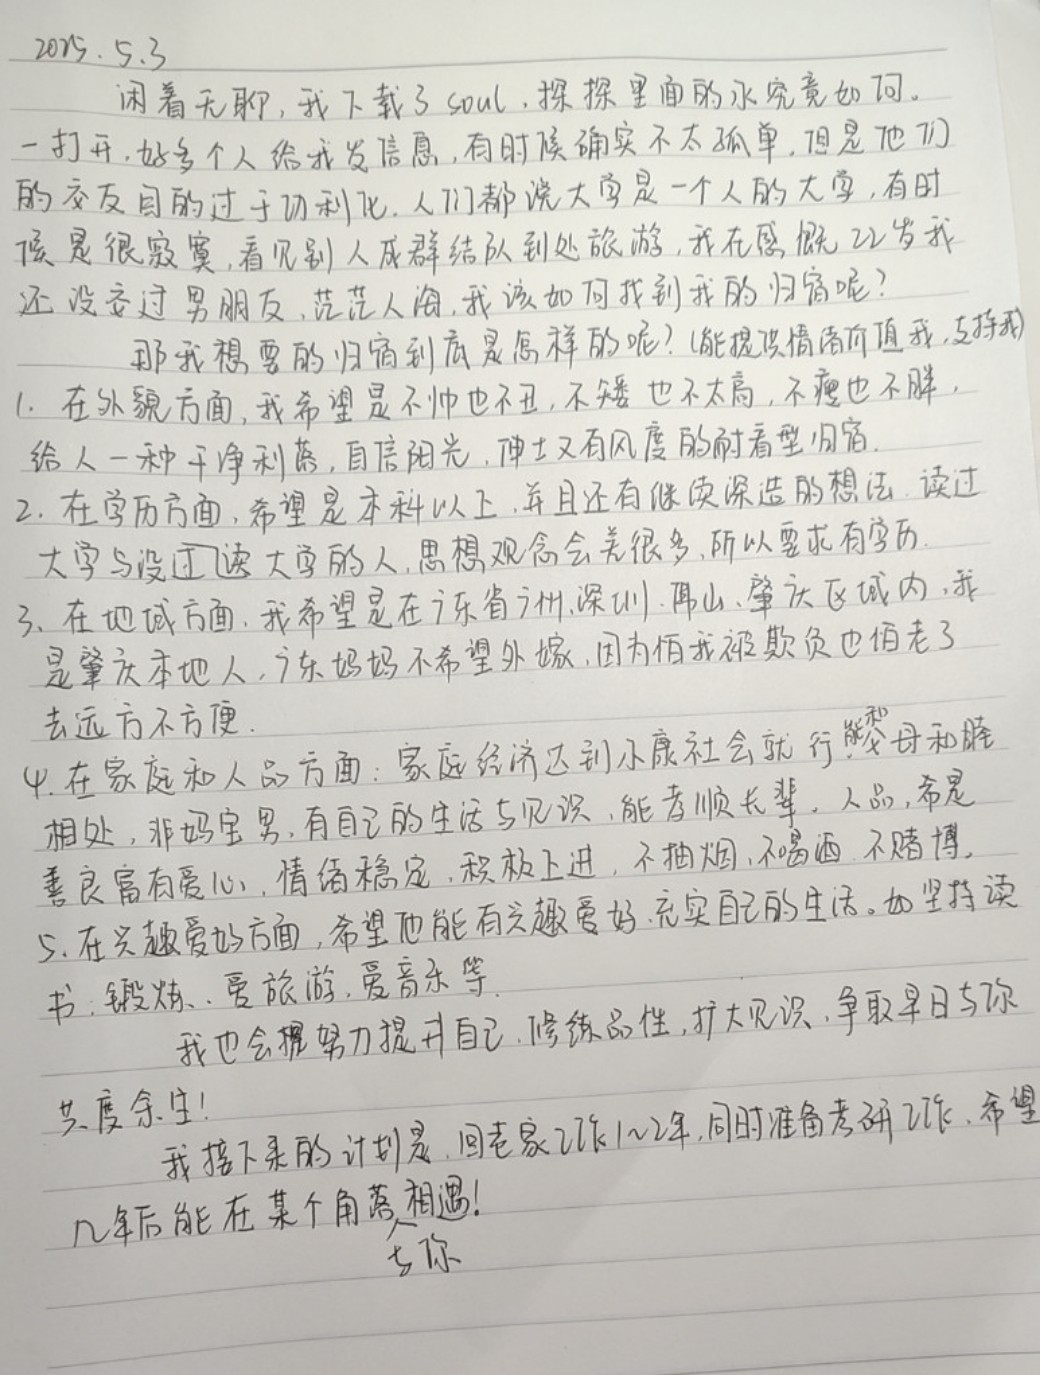 2025.5.3
闲着无聊,我下载了soul,探探里面的水究竟如何。
一打开,好多个人给我发信息,有时候确实不太孤单,但是他们
的交友目的过于功利化.人们都说大学是一个人的大学,有时
候是很寂寞,看见别人成群结队到处旅游,我在感慨22岁我
还没交过男朋友,茫茫人海,我该如何找到我的归宿呢?
那我想要的归宿到底是怎样的呢?(能提供情绪价值我,支持我)
1. 在外貌方面,我希望是不帅也不丑,不矮也不太高,不瘦也不胖,
给人一种干净利落,自信阳光,绅士又有风度的耐看型归宿.
2. 在学历方面,希望是本科以上,并且还有继续深造的想法.读过
大学与没过读大学的人,思想观念会差很多,所以要求有学历.
3、在地域方面,我希望是在广东省广州、深圳、佛山、肇庆区域内,我
是肇庆本地人,广东妈妈不希望外嫁,因为怕我被欺负也怕老了
去远方不方便.
4.在家庭和人品方面:家庭经济达到小康社会就行,能和父母和睦
相处,非妈宝男,有自己的生活与见识,能孝顺长辈.人品,希是
善良富有爱心,情绪稳定,积极上进,不抽烟、不喝酒、不赌博。
5、在兴趣爱好方面,希望他能有兴趣爱好,充实自己的生活。如坚持读
书、锻炼、爱旅游、爱音乐等.
我也会努力提升自己,修练品性,扩大见识,争取早日与你
共度余生!
我接下来的计划是,回老家工作1~2年,同时准备考研工作,希望
几年后能在某个角落与你相遇!